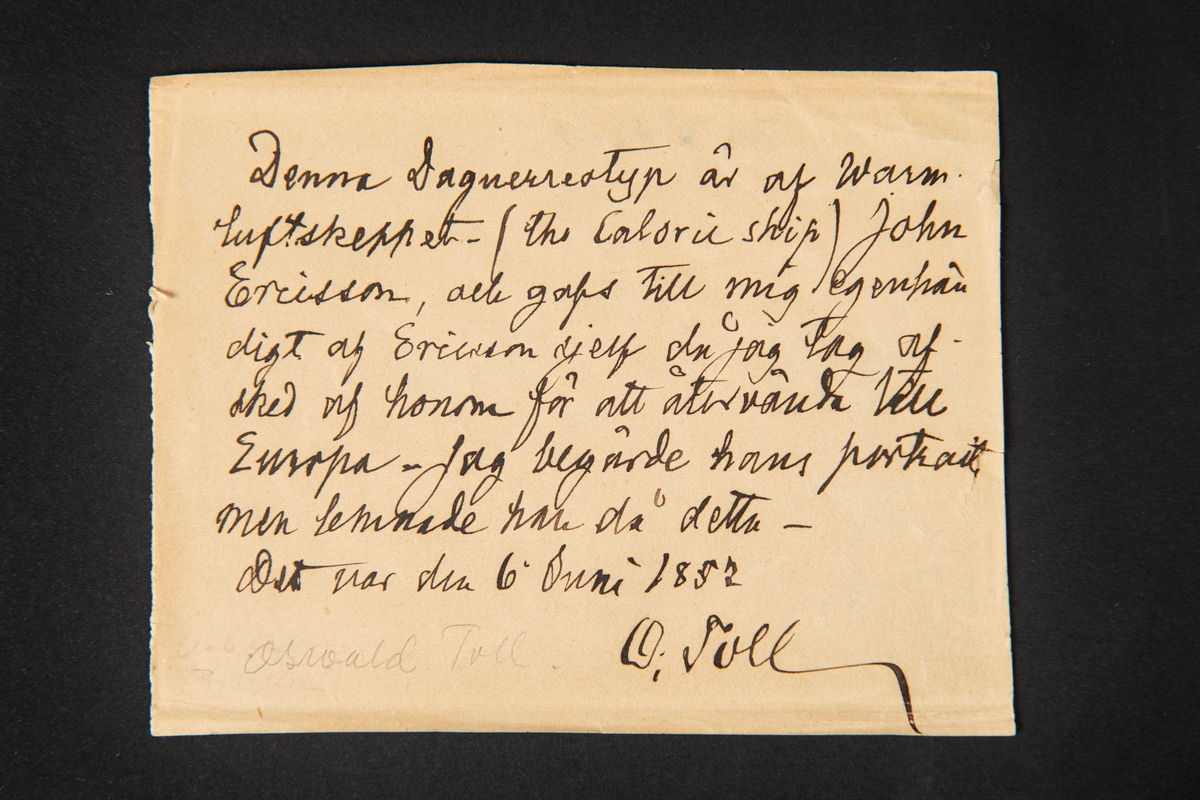 Denna Daguerreotyp är af Warm-
luftskeppet - (the Caloric ship) John
Ericsson, och gafs till mig egenhän
digt af Ericsson sjelf då jag tog af-
sked af honom för att återvända till
Europa - Jag begärde hans portrait,
men lemnade han då detta -
Det var den 6 Juni 1852
O. Toll
Oswald Toll.